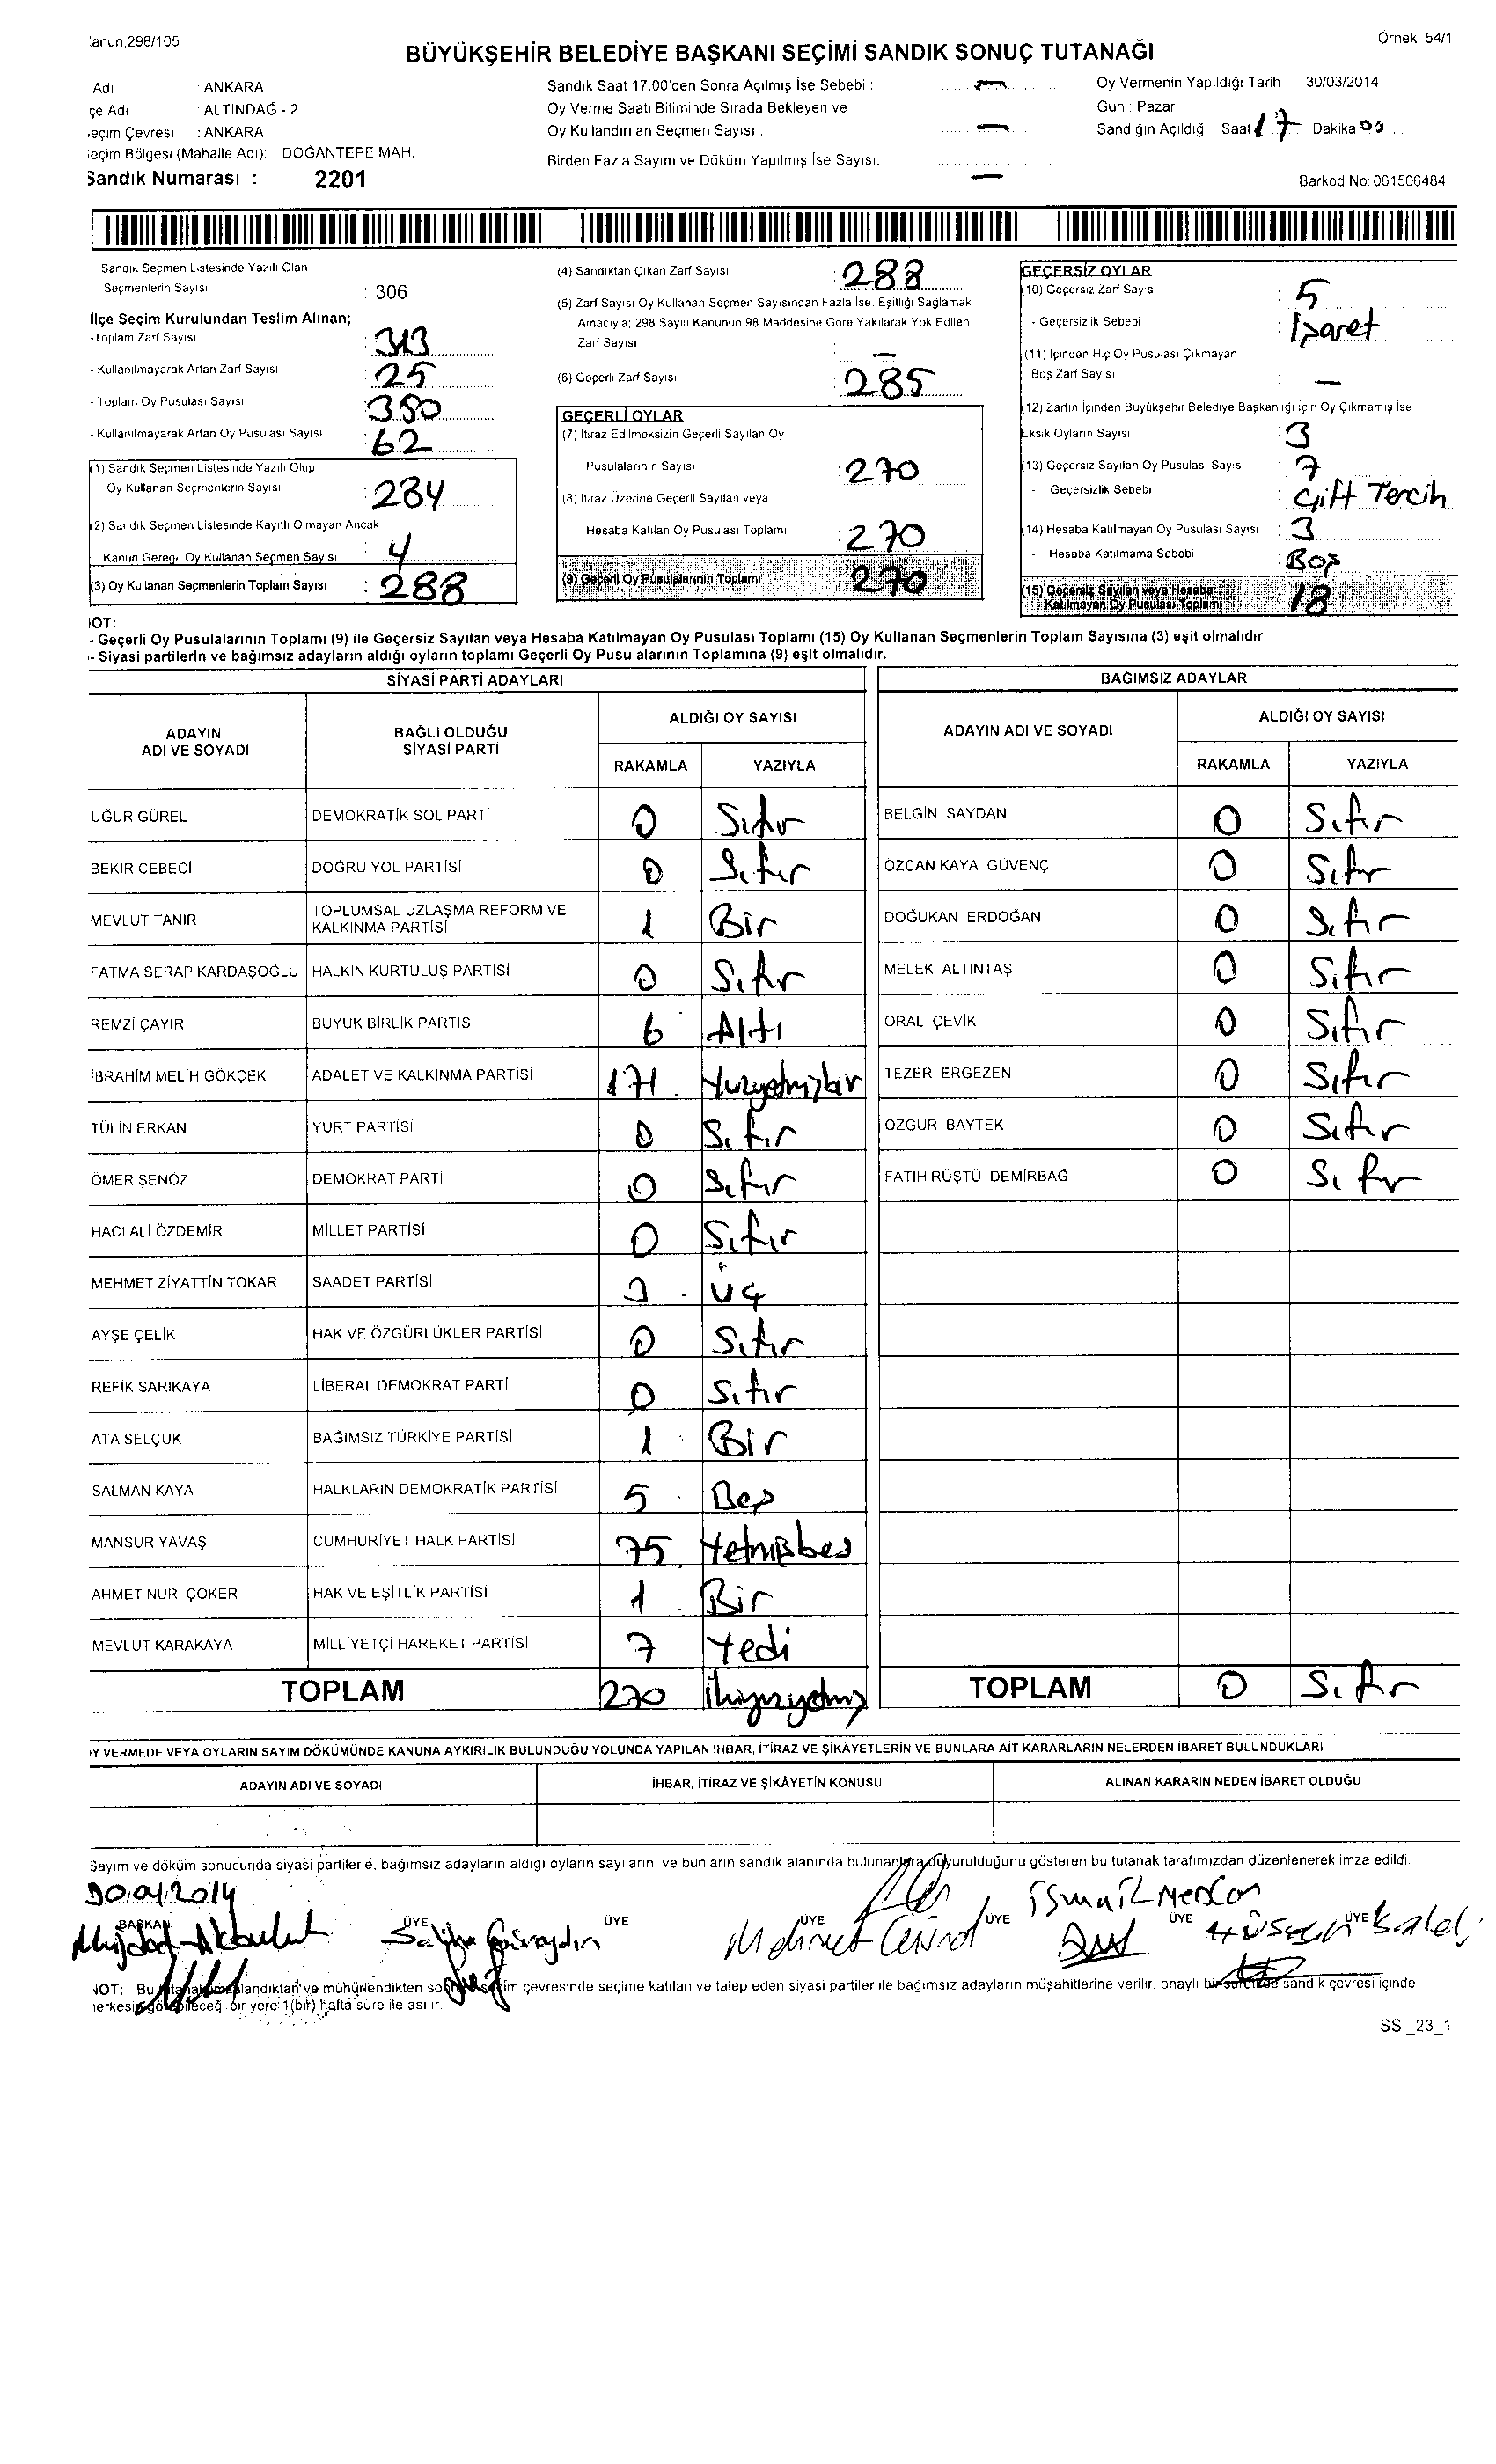 Kanun,298/105
Örnek: 54/1
BÜYÜKŞEHİR BELEDİYE BAŞKANI SEÇİMİ SANDIK SONUÇ TUTANAĞI
Adı : ANKARA
çe Adı : ALTINDAĞ - 2
eçim Çevresi : ANKARA
eçim Bölgesi (Mahalle Adı): DOĞANTEPE MAH.
Sandık Numarası : 2201
Sandık Saat 17.00'den Sonra Açılmış İse Sebebi : —
Oy Verme Saati Bitiminde Sırada Bekleyen ve
Oy Kullandırılan Seçmen Sayısı : —
Birden Fazla Sayım ve Döküm Yapılmış İse Sayısı: —
Oy Vermenin Yapıldığı Tarih : 30/03/2014
Gün : Pazar
Sandığın Açıldığı Saat 17 Dakika 00
Barkod No: 061506484
Sandık Seçmen Listesinde Yazılı Olan
Seçmenlerin Sayısı : 306
İlçe Seçim Kurulundan Teslim Alınan;
-Toplam Zarf Sayısı : 313
- Kullanılmayarak Artan Zarf Sayısı : 25
- Toplam Oy Pusulası Sayısı : 350
- Kullanılmayarak Artan Oy Pusulası Sayısı : 62
(1) Sandık Seçmen Listesinde Yazılı Olup
Oy Kullanan Seçmenlerin Sayısı : 284
(2) Sandık Seçmen Listesinde Kayıtlı Olmayan Ancak
Kanun Gereği Oy Kullanan Seçmen Sayısı : 4
(3) Oy Kullanan Seçmenlerin Toplam Sayısı : 288
(4) Sandıktan Çıkan Zarf Sayısı : 288
(5) Zarf Sayısı Oy Kullanan Seçmen Sayısından Fazla İse. Eşitliği Sağlamak
Amacıyla; 298 Sayılı Kanunun 98 Maddesine Göre Yakılarak Yok Edilen
Zarf Sayısı : —
(6) Geçerli Zarf Sayısı : 285
GEÇERLİ OYLAR
(7) İtiraz Edilmeksizin Geçerli Sayılan Oy
Pusulalarının Sayısı : 270
(8) İtiraz Üzerine Geçerli Sayılan veya
Hesaba Katılan Oy Pusulası Toplamı : 270
(9) Geçerli Oy Pusulalarının Toplamı 270
GEÇERSİZ OYLAR
(10) Geçersiz Zarf Sayısı : 5
- Geçersizlik Sebebi : İşaret
(11) İçinden Hiç Oy Pusulası Çıkmayan
Boş Zarf Sayısı : —
(12) Zarfın İçinden Büyükşehir Belediye Başkanlığı için Oy Çıkmamış İse
Eksik Oyların Sayısı : 3
(13) Geçersiz Sayılan Oy Pusulası Sayısı : 7
- Geçersizlik Sebebi : Çift Tercih
(14) Hesaba Katılmayan Oy Pusulası Sayısı : 3
- Hesaba Katılmama Sebebi : Boş
(15) Geçersiz Sayılan veya Hesaba
Katılmayan Oy Pusulası Toplamı 18
NOT:
- Geçerli Oy Pusulalarının Toplamı (9) ile Geçersiz Sayılan veya Hesaba Katılmayan Oy Pusulası Toplamı (15) Oy Kullanan Seçmenlerin Toplam Sayısına (3) eşit olmalıdır.
- Siyasi partilerin ve bağımsız adayların aldığı oyların toplamı Geçerli Oy Pusulalarının Toplamına (9) eşit olmalıdır.
SİYASİ PARTİ ADAYLARI
ADAYIN ADI VE SOYADI
BAĞLI OLDUĞU SİYASİ PARTİ
ALDIĞI OY SAYISI
RAKAMLA YAZIYLA
UĞUR GÜREL DEMOKRATİK SOL PARTİ 0 Sıfır
BEKİR CEBECİ DOĞRU YOL PARTİSİ 0 Sıfır
MEVLÜT TANIR TOPLUMSAL UZLAŞMA REFORM VE KALKINMA PARTİSİ 1 Bir
FATMA SERAP KARDAŞOĞLU HALKIN KURTULUŞ PARTİSİ 0 Sıfır
REMZİ ÇAYIR BÜYÜK BİRLİK PARTİSİ 6 Altı
İBRAHİM MELİH GÖKÇEK ADALET VE KALKINMA PARTİSİ 171 Yüzyetmişbir
TÜLİN ERKAN YURT PARTİSİ 0 Sıfır
ÖMER ŞENÖZ DEMOKRAT PARTİ 0 Sıfır
HACI ALİ ÖZDEMİR MİLLET PARTİSİ 0 Sıfır
MEHMET ZİYATTİN TOKAR SAADET PARTİSİ 3 Üç
AYŞE ÇELİK HAK VE ÖZGÜRLÜKLER PARTİSİ 0 Sıfır
REFİK SARIKAYA LİBERAL DEMOKRAT PARTİ 0 Sıfır
ATA SELÇUK BAĞIMSIZ TÜRKİYE PARTİSİ 1 Bir
SALMAN KAYA HALKLARIN DEMOKRATİK PARTİSİ 5 Beş
MANSUR YAVAŞ CUMHURİYET HALK PARTİSİ 75 Yetmişbeş
AHMET NURİ ÇOKER HAK VE EŞİTLİK PARTİSİ 1 Bir
MEVLUT KARAKAYA MİLLİYETÇİ HAREKET PARTİSİ 7 Yedi
TOPLAM 270 İkiyüzyetmiş
BAĞIMSIZ ADAYLAR
ADAYIN ADI VE SOYADI
ALDIĞI OY SAYISI
RAKAMLA YAZIYLA
BELGİN SAYDAN 0 Sıfır
ÖZCAN KAYA GÜVENÇ 0 Sıfır
DOĞUKAN ERDOĞAN 0 Sıfır
MELEK ALTINTAŞ 0 Sıfır
ORAL ÇEVİK 0 Sıfır
TEZER ERGEZEN 0 Sıfır
ÖZGUR BAYTEK 0 Sıfır
FATİH RÜŞTÜ DEMİRBAĞ 0 Sıfır
TOPLAM 0 Sıfır
OY VERMEDE VEYA OYLARIN SAYIM DÖKÜMÜNDE KANUNA AYKIRILIK BULUNDUĞU YOLUNDA YAPILAN İHBAR, İTİRAZ VE ŞİKÂYETLERİN VE BUNLARA AİT KARARLARIN NELERDEN İBARET BULUNDUKLARI
ADAYIN ADI VE SOYADI
İHBAR, İTİRAZ VE ŞİKÂYETİN KONUSU
ALINAN KARARIN NEDEN İBARET OLDUĞU
Sayım ve döküm sonucunda siyasi partilerle, bağımsız adayların aldığı oyların sayılarını ve bunların sandık alanında bulunanlara duyurulduğunu gösteren bu tutanak tarafımızdan düzenlenerek imza edildi.
30/04/2014
BAŞKAN ÜYE ÜYE ÜYE ÜYE ÜYE ÜYE
Müjdat Akbulut
Mehmet
İsmail
Hüseyin
NOT: Bu tutanak imzalandıktan ve mühürlendikten sonra seçim çevresinde seçime katılan ve talep eden siyasi partiler ile bağımsız adayların müşahitlerine verilir. onaylı bir suretide sandık çevresi içinde
herkesin görebileceği bir yere 1(bir) hafta süre ile asılır.
SSI_23_1